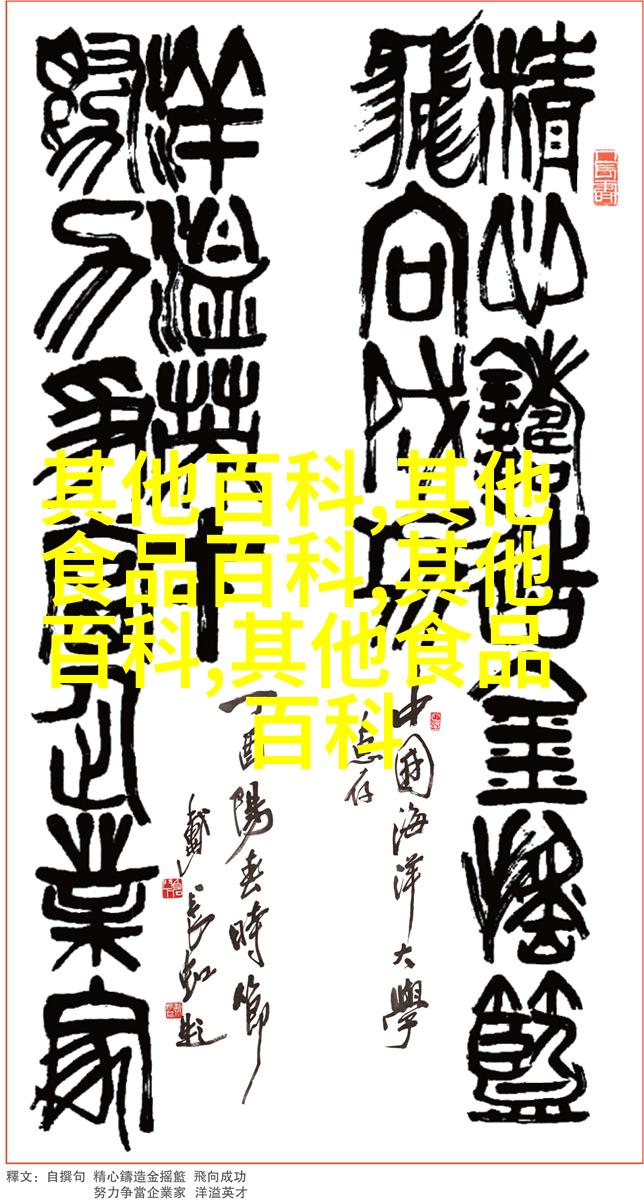 精心鑄造金摇籃
飛向成功
洋溢英才
努力争當企業家
中國海洋大學
志存
丁酉陽春時節
戴長虹題
其他百科,其他
食品百科,其他
百科,其他食品
百科
釋文：自撰句 精心鑄造金摇籃 飛向成功
努力争當企業家 洋溢英才